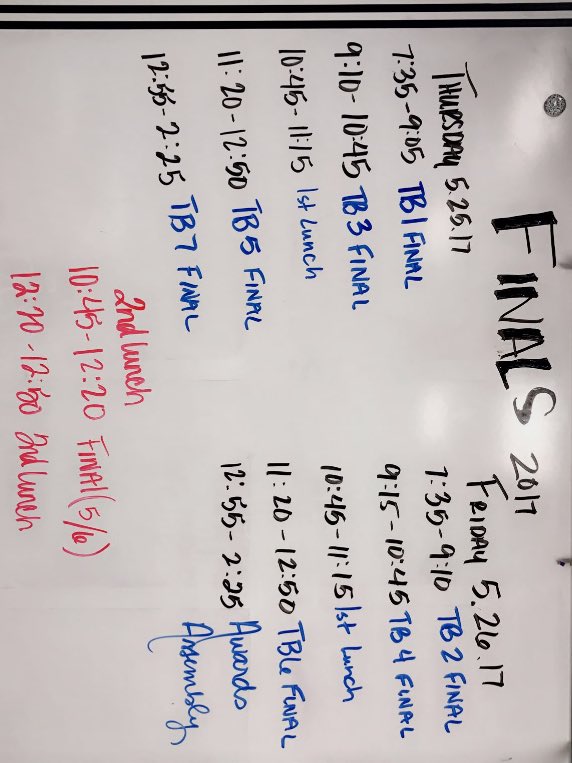 FINALS 2017
THURSDAY 5.25.17
7:35-9:05 TB1 FINAL
9:10-10:45 TB3 FINAL
10:45-11:15 1st Lunch
11:20-12:50 TB5 FINAL
12:55-2:25 TB7 FINAL
FRIDAY 5.26.17
7:35-9:10 TB2 FINAL
9:15-10:45 TB4 FINAL
10:45-11:15 1st Lunch
11:20-12:50 TB6 FINAL
12:55-2:25 Awards
Assembly
2nd Lunch
10:45-12:20 FINAl (5/6)
12:20-12:50 2nd Lunch